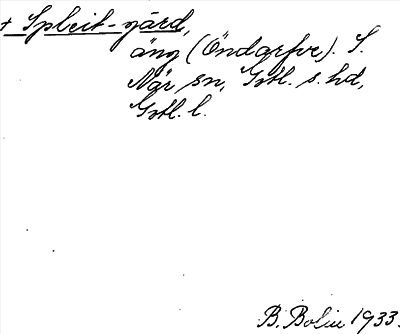 + Spleit-gärd,
äng (Öndarfve). S.
När sn, Gotl. s. hd,
Gotl. l.
B. Bolin 1933.